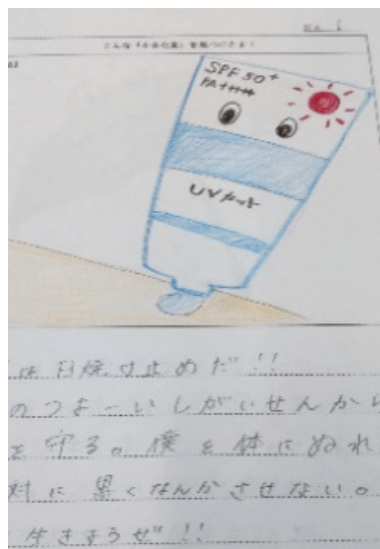 No. 6
こんな「小さな夏」を見つけたよ!
SPF 50+
PA++++
UVカット
は日焼け止めだ!!
のつよーいしがいせんから
を守る。僕を体にぬれ
対に黒くなんかさせない。
生きようぜ!!